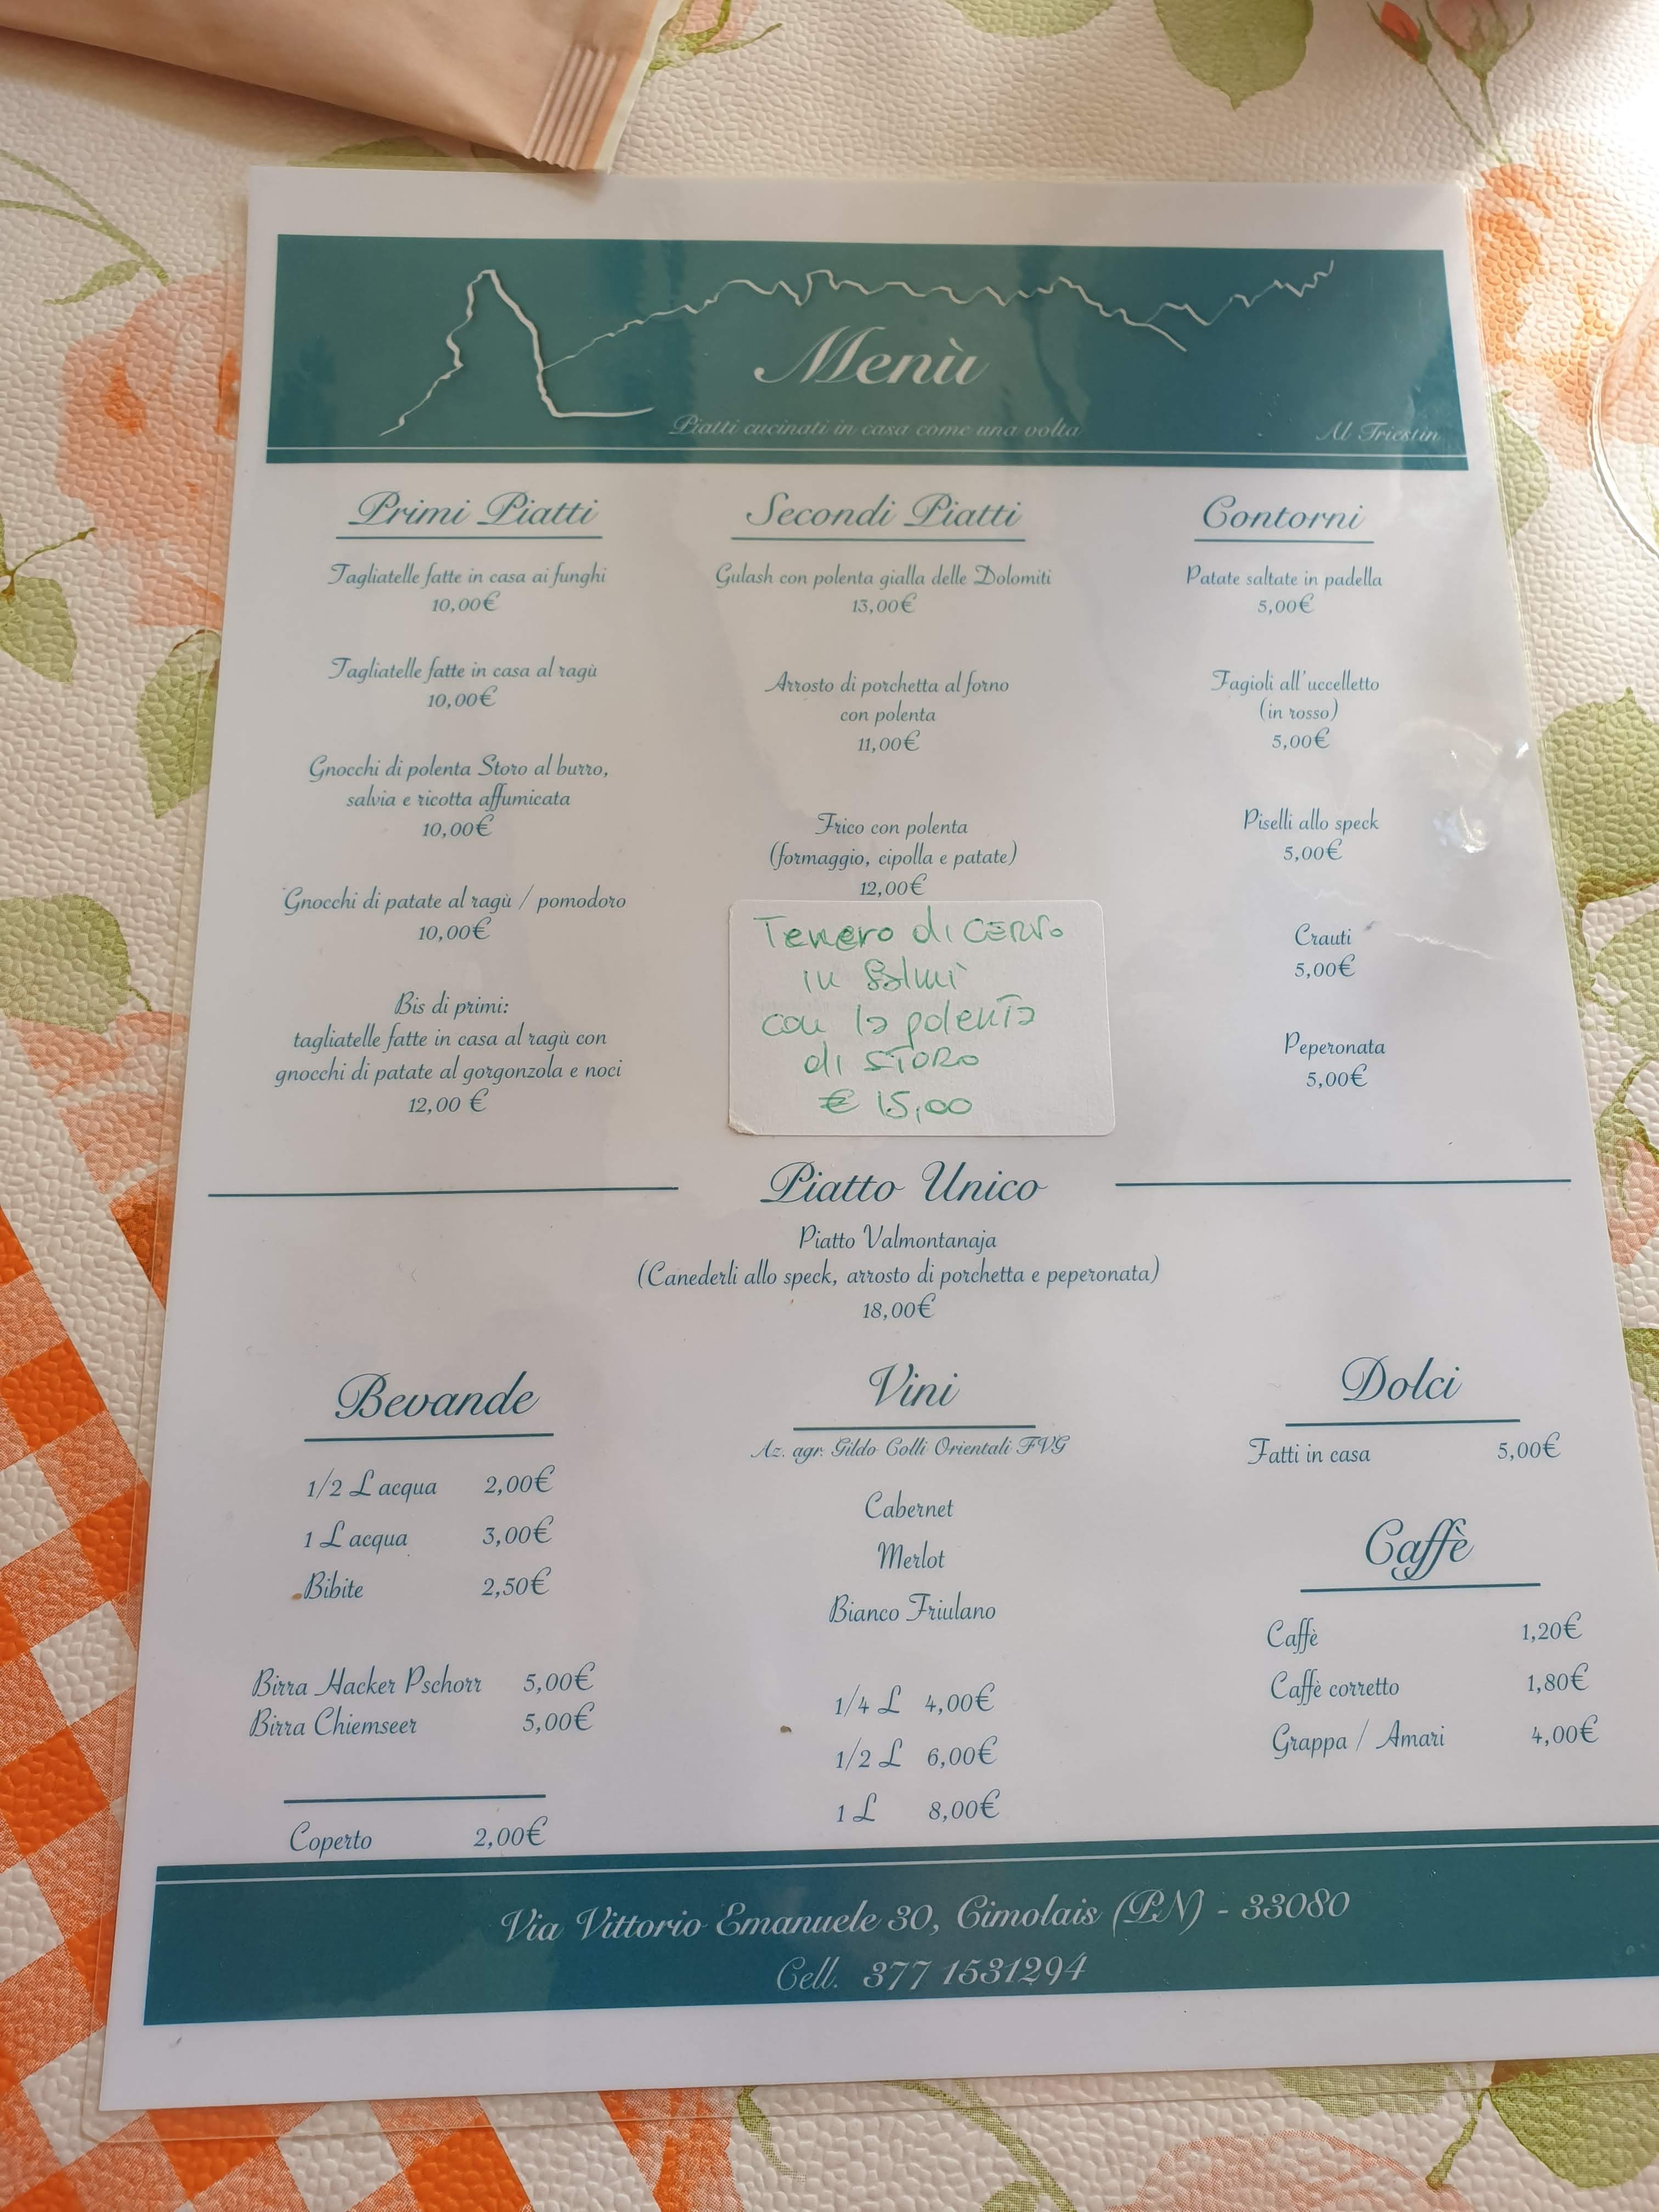 Menù
Piatti cucinati in casa come una volta
Al Triestin
Primi Piatti
Tagliatelle fatte in casa ai funghi
10,00€
Tagliatelle fatte in casa al ragù
10,00€
Gnocchi di polenta Storo al burro,
salvia e ricotta affumicata
10,00€
Gnocchi di patate al ragù / pomodoro
10,00€
Bis di primi:
tagliatelle fatte in casa al ragù con
gnocchi di patate al gorgonzola e noci
12,00 €
Secondi Piatti
Gulash con polenta gialla delle Dolomiti
13,00€
Arrosto di porchetta al forno
con polenta
11,00€
Frico con polenta
(formaggio, cipolla e patate)
12,00€
Tenero di CERVO
in Salmì
con la polenta
di STORO
€ 15,00
Contorni
Patate saltate in padella
5,00€
Fagioli all'uccelletto
(in rosso)
5,00€
Piselli allo speck
5,00€
Crauti
5,00€
Peperonata
5,00€
Piatto Unico
Piatto Valmontanaja
(Canederli allo speck, arrosto di porchetta e peperonata)
18,00€
Bevande
1/2 L acqua 2,00€
1 L acqua 3,00€
Bibite 2,50€
Birra Hacker Pschorr 5,00€
Birra Chiemseer 5,00€
Coperto 2,00€
Vini
Az. agr. Gildo Colli Orientali FVG
Cabernet
Merlot
Bianco Friulano
1/4 L 4,00€
1/2 L 6,00€
1 L 8,00€
Dolci
Fatti in casa 5,00€
Caffè
Caffè 1,20€
Caffè corretto 1,80€
Grappa / Amari 4,00€
Via Vittorio Emanuele 30, Cimolais (PN) - 33080
Cell. 377 1531294